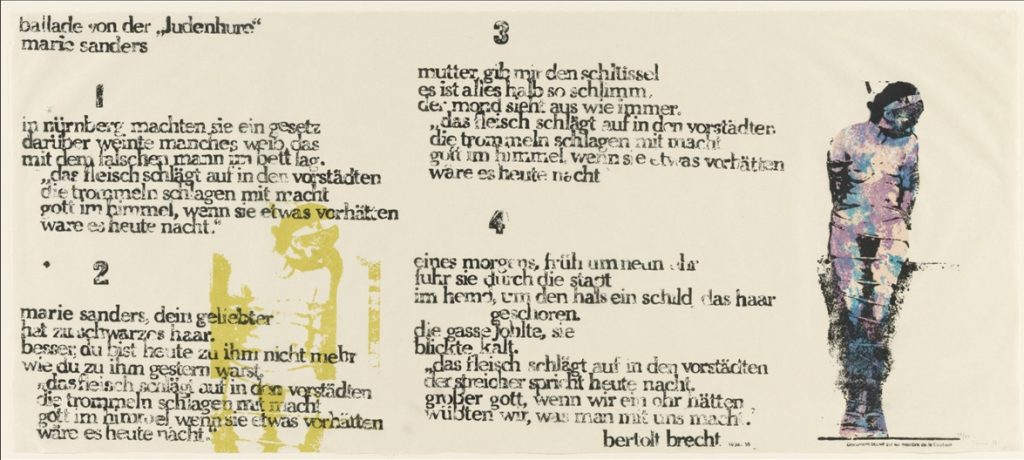 ballade von der „Judenhure“
marie sanders
1
in nürnberg machten sie ein gesetz
darüber weinte manches weib, das
mit dem falschen mann im bett lag.
„das fleisch schlägt auf in den vorstädten
die trommeln schlagen mit macht
gott im himmel, wenn sie etwas vorhätten
wäre es heute nacht.“
2
marie sanders, dein geliebter
hat zu schwarzes haar.
besser, du bist heute zu ihm nicht mehr
wie du zu ihm gestern warst.
„das fleisch schlägt auf in den vorstädten
die trommeln schlagen mit macht
gott im himmel wenn sie etwas vorhätten
wäre es heute nacht.“
3
mutter, gib mir den schlüssel
es ist alles halb so schlimm.
der mond sieht aus wie immer.
„das fleisch schlägt auf in den vorstädten
die trommeln schlagen mit macht
gott im himmel, wenn sie etwas vorhätten
wäre es heute nacht
4
eines morgens, früh um neun uhr
fuhr sie durch die stadt
im hemd, um den hals ein schild das haar
geschoren.
die gasse johlte, sie
blickte kalt.
„das fleisch schlägt auf in den vorstädten
der streicher spricht heute nacht.
großer gott, wenn wir ein ohr hätten
wüßten wir, was man mit uns macht.“
bertolt brecht